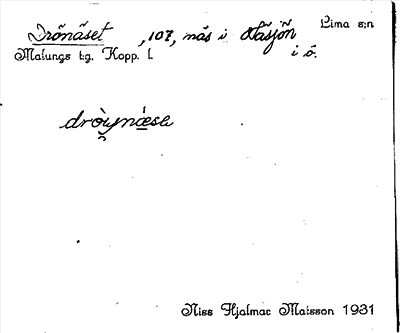 Drönäset, 107, näs i Håsjön Lima s:n
Malungs tg. Kopp. l. i ö.
dròynǽse
Niss Hjalmar Matsson 1931